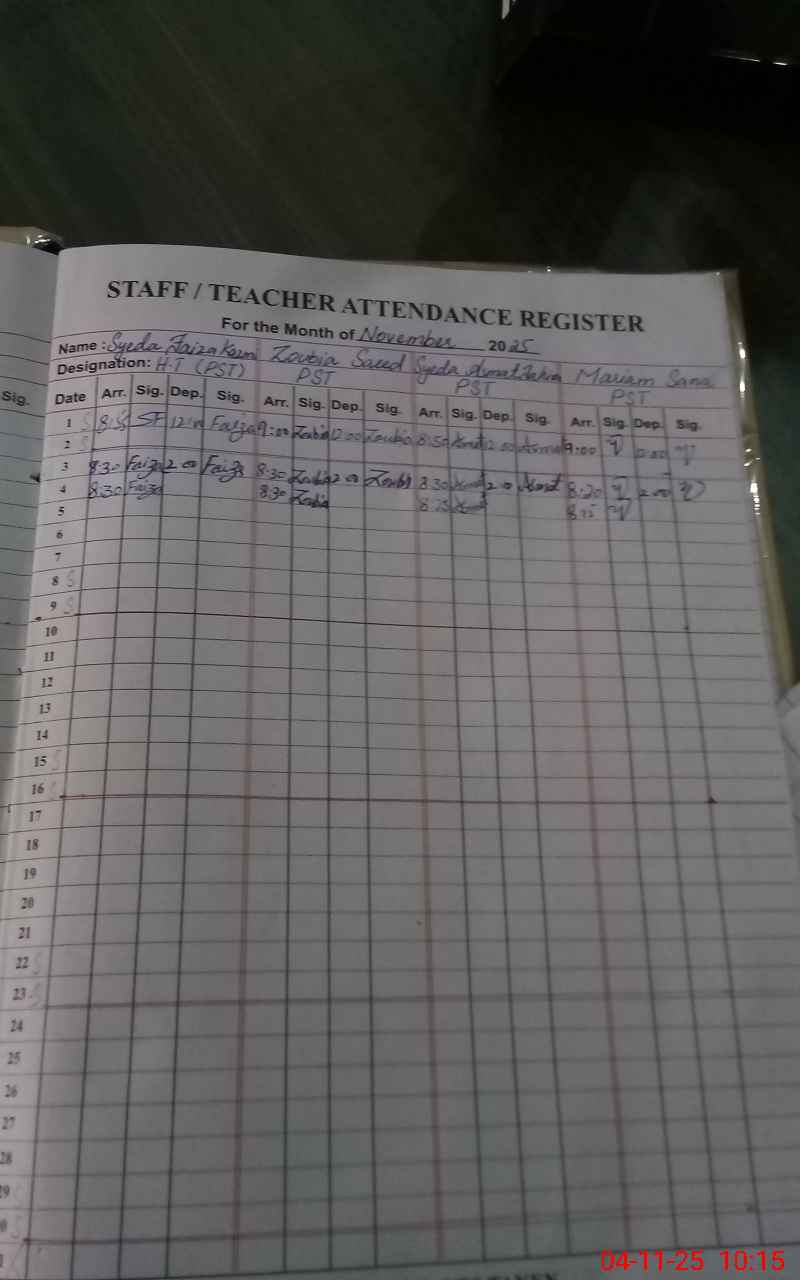 STAFF / TEACHER ATTENDANCE REGISTER
For the Month of November 2025
Name: Syeda Faiza Kazmi Zoubia Saeed Syeda Mariam Sana
Designation: H.T (PST) PST PST PST
Sig. Date Arr. Sig. Dep. Sig. Arr. Sig. Dep. Sig. Arr. Sig. Dep. Sig. Arr. Sig. Dep. Sig.
1 S SF Faiza 9:00 Zoubia 12 00 Zoubia 8:50 12 00 9:00
2 S
3 8:30 Faiza 2 00 Faiza 8:30 Zoubia 2 00 Zoubia 8 30 2 00 8:20 2 00
4 8:30 Faiza 8:30 Zoubia 8 25
5
6
7
8 S
9 S
10
11
12
13
14
15 S
16 S
17
18
19
20
21
22 S
23 S
24
25
26
27
28
9 S
0 S
04-11-25 10:15